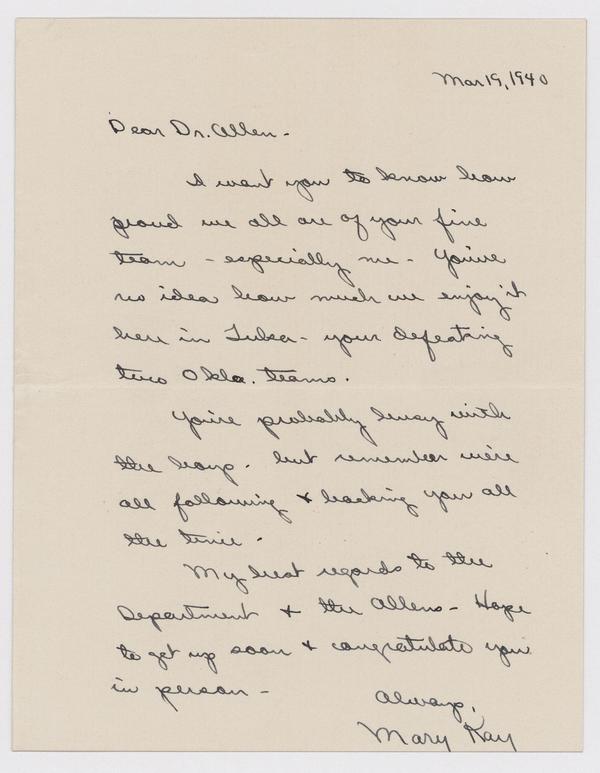 Mar 19, 1940
Dear Dr. Allen -
I want you to know how
proud we all are of your fine
team - especially me - You've
no idea how much we enjoy it
here in Tulsa - your defeating
two Okla. teams.
You're probably busy with
the boys - but remember we're
all following & backing you all
the time -
My best regards to the
Department & the Allens - Hope
to get up soon & congratulate you
in person -
Always,
Mary Kay